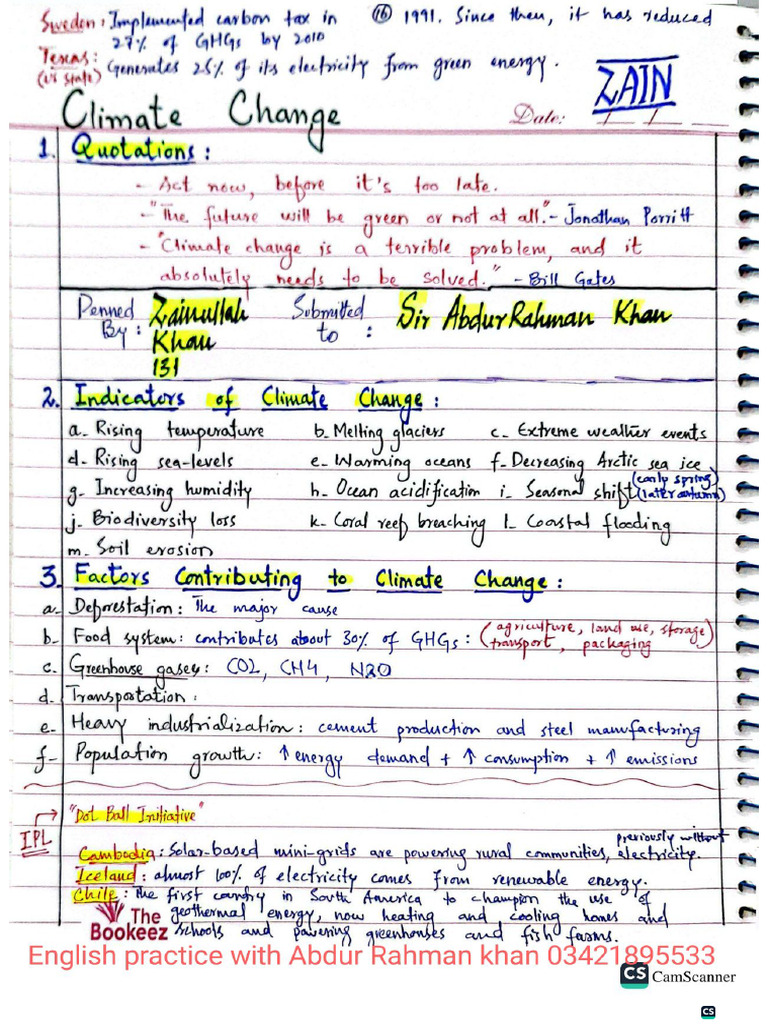 Sweden: Implemented carbon tax in (16) 1991. Since then, it has reduced
27% of GHGs by 2010
Texas: Generates 25% of its electricity from green energy.
(US State)
ZAIN
Climate Change
Date: __/__/__
1. Quotations:
- Act now, before it's too late.
- "The future will be green or not at all." - Jonathan Porritt
- "Climate change is a terrible problem, and it
absolutely needs to be solved." - Bill Gates
Penned By: Zainullah Khan 131
Submitted to: Sir AbdurRahman Khan
2. Indicators of Climate Change:
a- Rising temperature b- Melting glaciers c- Extreme weather events
d- Rising sea-levels e- Warming oceans f- Decreasing Arctic sea ice
g- Increasing humidity h- Ocean acidification i- Seasonal shift (early spring) (later autumn)
j- Biodiversity loss k- Coral reef breaching l- Coastal flooding
m- Soil erosion
3. Factors Contributing to Climate Change:
a- Deforestation: The major cause
b- Food system: contributes about 30% of GHGs: (agriculture, land use, storage)
transport, packaging
c- Greenhouse gases: CO2, CH4, N2O
d- Transportation:
e- Heavy industrialization: cement production and steel manufacturing
f- Population growth: ↑ energy demand + ↑ consumption + ↑ emissions
IPL → "Dot Ball Initiative"
Cambodia: Solar-based mini-grids are powering rural communities, previously without electricity.
Iceland: almost 100% of electricity comes from renewable energy.
Chile: the first country in South America to champion the use of
geothermal energy, now heating and cooling homes and
schools and powering greenhouses and fish farms.
The
Bookeez
English practice with Abdur Rahman khan 03421895533
CS CamScanner
CS